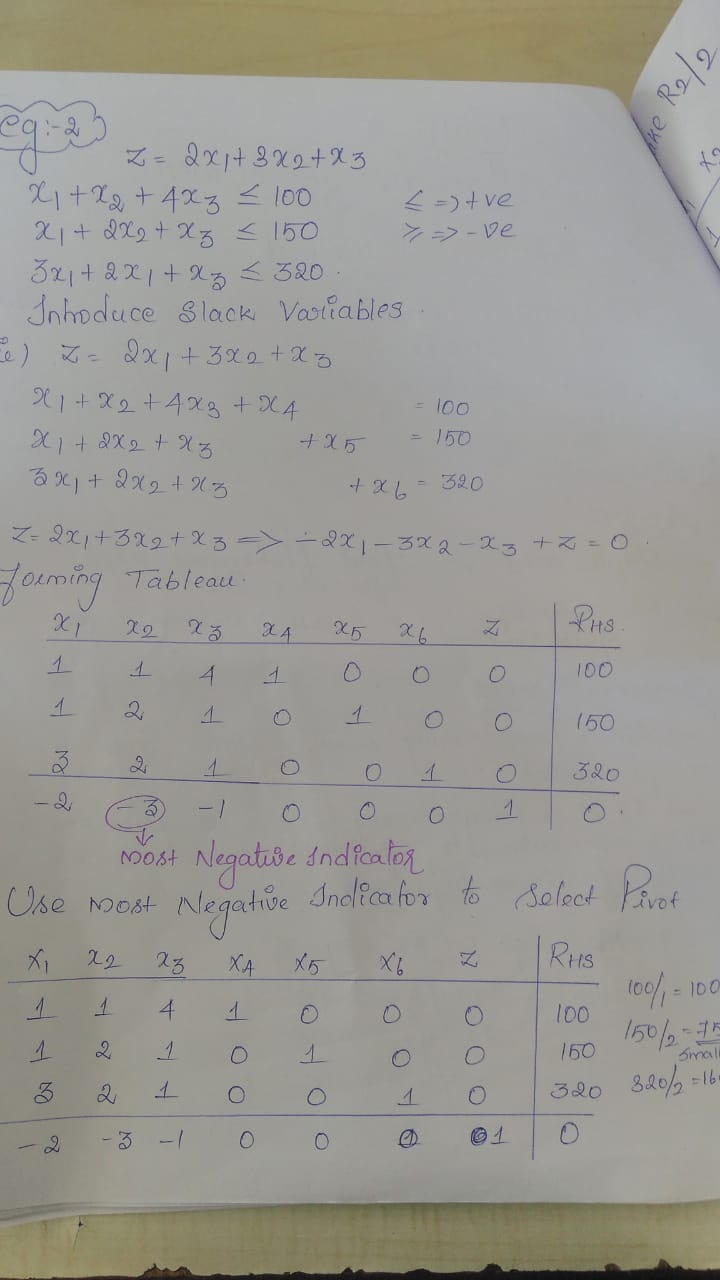 eg:-2
Z = 2x1 + 3x2 + x3
x1 + x2 + 4x3 ≤ 100 ≤ => +ve
x1 + 2x2 + x3 ≤ 150 ≥ => -ve
3x1 + 2x1 + x3 ≤ 320.
Introduce Slack Variables.
ie) Z = 2x1 + 3x2 + x3
x1 + x2 + 4x3 + x4 = 100
x1 + 2x2 + x3 + x5 = 150
3x1 + 2x2 + x3 + x6 = 320
Z = 2x1 + 3x2 + x3 => -2x1 - 3x2 - x3 + Z = 0.
Forming Tableau.
x1 x2 x3 x4 x5 x6 Z RHS.
1 1 4 1 0 0 0 100
1 2 1 0 1 0 0 150
3 2 1 0 0 1 0 320
-2 -3 -1 0 0 0 1 0.
Most Negative Indicator
Use Most Negative Indicator to Select Pivot
x1 x2 x3 x4 x5 x6 Z RHS
1 1 4 1 0 0 0 100 100/1 = 100
1 2 1 0 1 0 0 150 150/2 = 75
3 2 1 0 0 1 0 320 320/2 = 16
-2 -3 -1 0 0 0 1 0
R2/2
x2
1